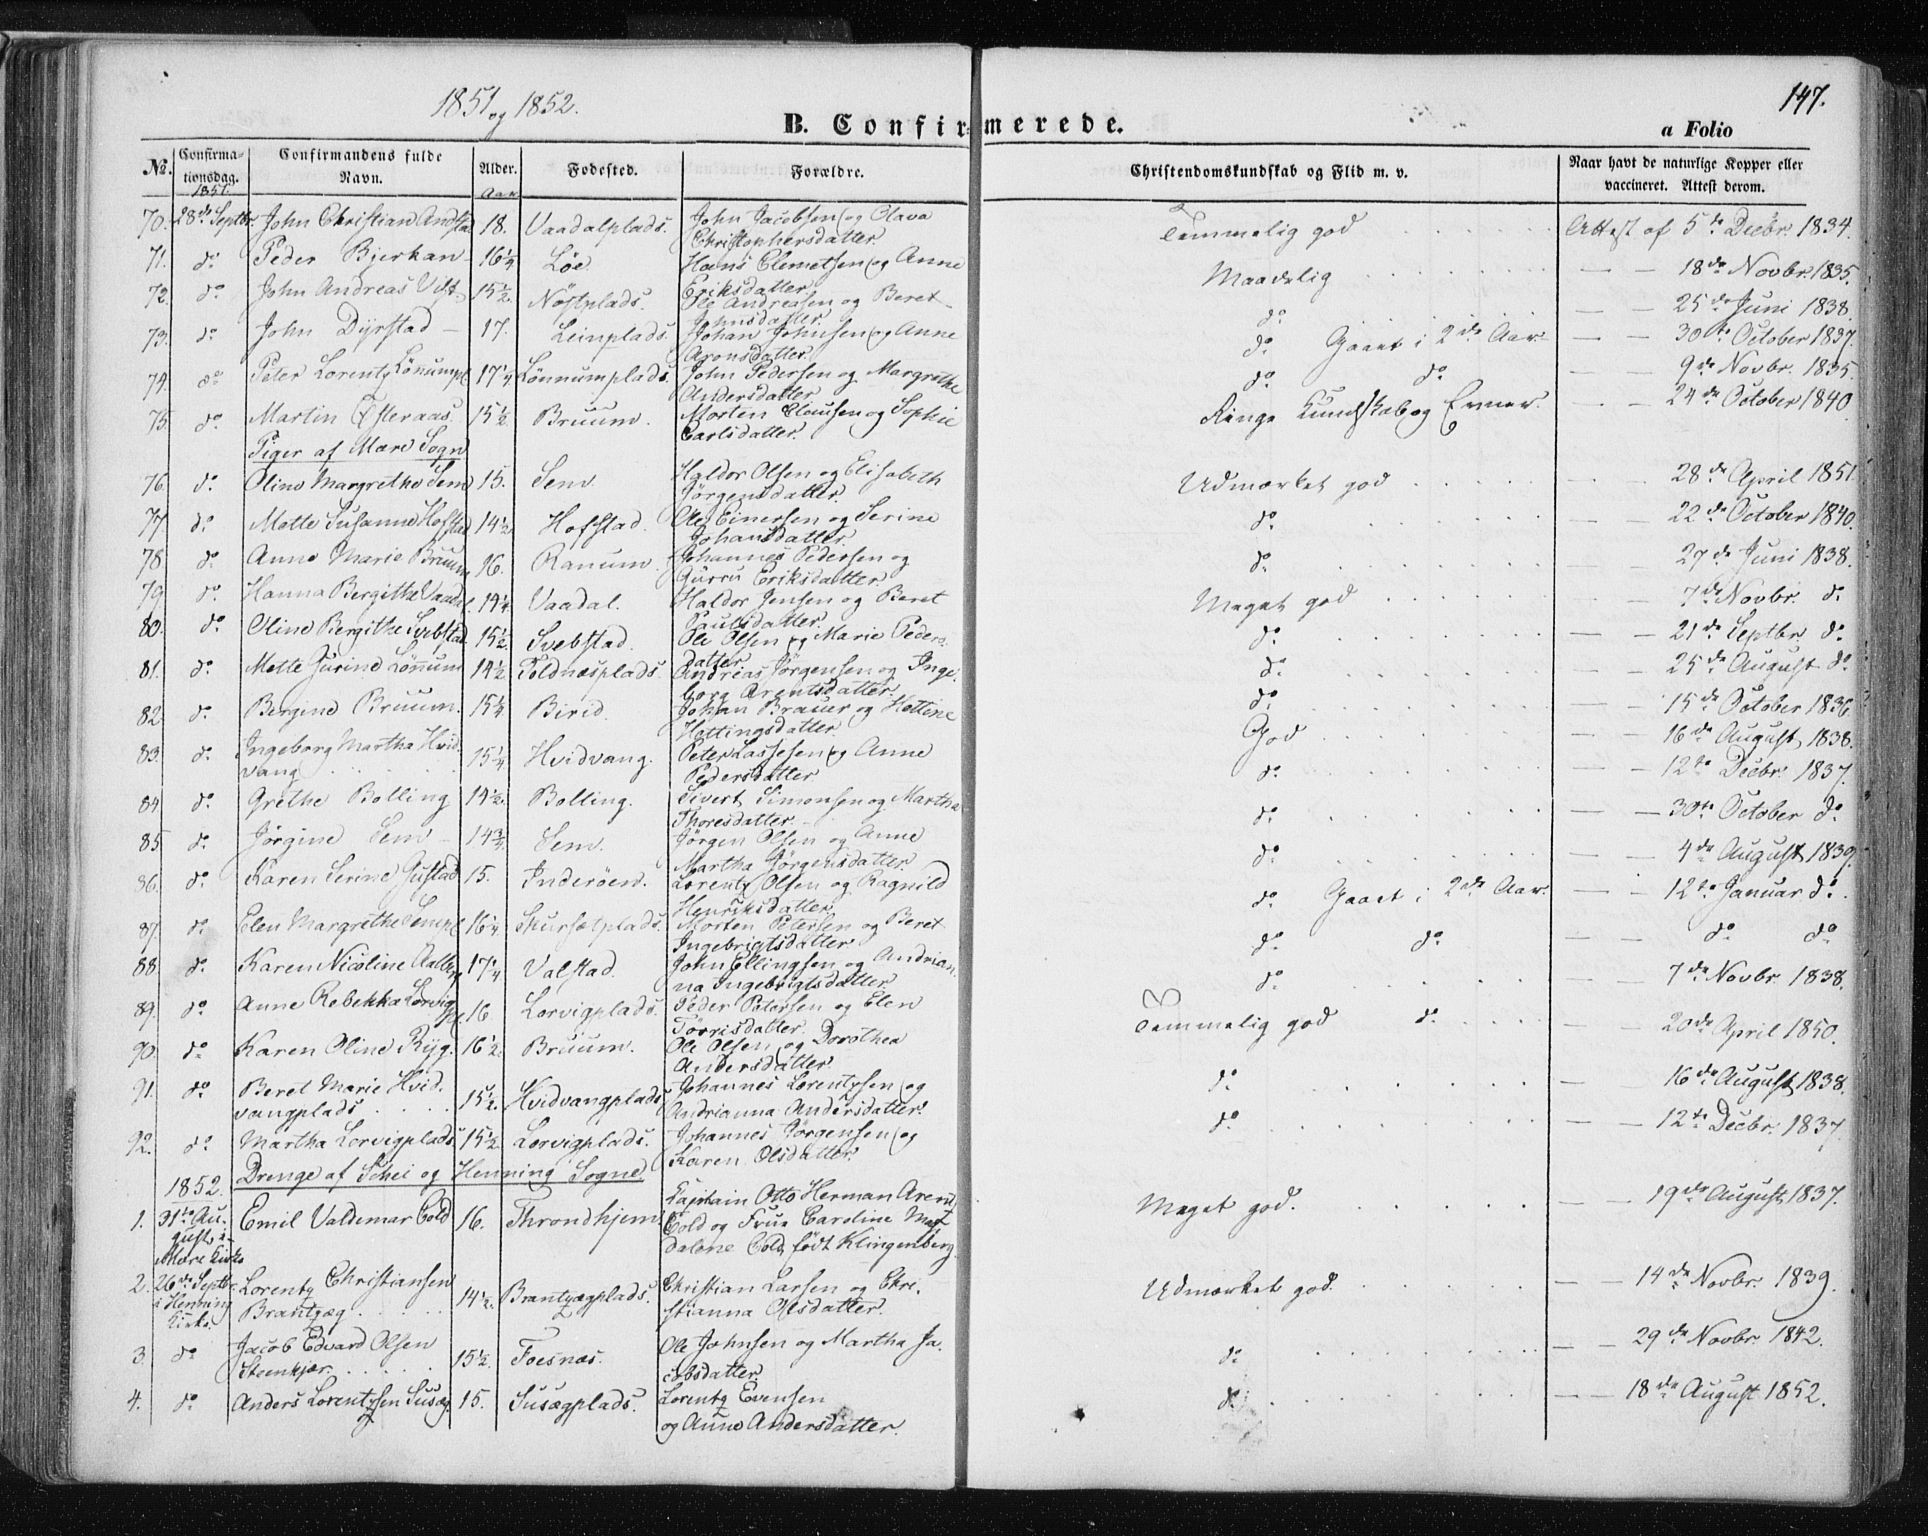 1851 og 1852.
147.
B. Confirmerede.
a Folio
No. Confirmationsdag. Confirmandens fulde Navn. Alder. Fødested. Forældre. Christendomskundskab og Flid m. v. Naar havt de naturlige Kopper eller vaccineret. Attest derom.
1851. Aar
70. 28de Septbr John Christian 18. Vaadalplads. John Jacobsen og Olava Christophersdatter. Temmelig god Attest af 5te Decbr. 1834.
71. do Peder Bjerkan 16 1/4 Løe Hans Clemetsen og Anne Eriksdatter. Maadelig — — 18de Novbr. 1835.
72. do John Andreas 15 1/2 Nøstplads. Ole Andreasen og Beret Johnsdatter. do — — 25de Juni 1838.
73. do John Dyrstad — 17. Leinplads. Johan Johnsen og Anne Aronsdatter. do Gaaet i 2de Aar — — 30te October 1837.
74. do Peter Lorentz Lønnumpl 17 1/4 Lønnumplads. John Pedersen og Margrethe Andersdatter. do do — — 9de Novbr. 1835.
75. do Martin Østeraas. 15 1/2 Bruum. Morten Clausen og Sophie Carlsdatter. Ringe Kundskab og Evner. — — 24de October 1840
Piger af Mære Sogn
76. do Oline Margrethe Sem 15. Sem. Haldor Olsen og Elisabeth Jørgensdatter. Udmærket god — — 28de April 1851.
77 do Mette Susanne Hofstad 14 1/2 Hofstad. Ole Einersen og Serine Johansdatter. do — — 22de October 1840.
78 do Anne Marie Bruum 16. Ranum. Johannes Pedersen og Gurru Eriksdatter. do — — 27de Juni 1838.
79 do Hanna Bergitha Vaadal. 14 1/4 Vaadal. Haldor Jensen og Beret Paulsdatter. Meget god — — 7de Novbr. do
80. do Oline Bergithe Svebstad 15 1/2. Svebstad. Ole Olsen og Marie Pedersdatter. do — — 21de Septbr do
81. do Mette Jurine Lønnum 14 1/2 Foldnæsplads. Andreas Jørgensen og Ingeborg Arentsdatter. do — — 25de August do
82. do Bergine Bruum. 15 1/4 Birid. Johan Brauer og Hottine Hottingsdatter. do — — 15de October 1836.
83. do Ingeborg Martha Hvidvang 15 1/4 Hvidvang. Peter Lassesen og Anne Pedersdatter God — — 16de August 1838.
84 do Grethe Bolling 14 1/2. Bolling. Sivert Simonsen og Martha Thoresdatter. do — — 12te Decbr. 1837.
85 do Jørgine Sem 14 3/4. Sem. Jørgen Olsen og Anne Martha Jørgensdatter. do — — 30te October do
86. do Karen Serine Gustad 15. Inderøen. Lorentz Olsen og Ragnild Henriksdatter. do — — 4de August 1839.
87. do Elen Margrethe Sempl 16 1/4 Skursætplads. Morten Petersen og Beret Ingebrigtsdatter do Gaaet i 2de Aar. — — 12te Januar do.
88. do Karen Nicoline 17 Valstad. John Ellingsen og Andrianna Ingebrigtsdatter do do — — do do
89. do Anne Rebekka Lorvigpl 16. Lorvigplads. Peder Petersen og Elen Tørrisdatter. do — — 7de Novbr. 1838.
90. do Karen Oline Ryg. 16 1/2. Bruum. Ole Olsen og Dorothea Andersdatter. Temmelig god do — — 20de April 1850.
91. do Beret Marie Hvidvangplads 15 1/2. Hvidvangplads Johannes Lorentzsen og Andrianna Andersdatter. do — 16de August 1838.
92. do Martha Lorvigplads 15 1/2 Lorvigplads. Johannes Jørgensen og Karen Olsdatter. do — — 12te Decbr. 1837.
1852. Drenge af Schei og Henning Sogne
1. 31te August i Mære Kirke Emil Valdemar Cold 16. Throndhjem. Kaptain Otto Herman Arent Cold og Frue Caroline Magdalene Cold født Klingenberg. Meget god. — 19de August 1837.
2. 26de Septbr i Henning Kirke. Lorentz Christiansen Brantzæg 14 1/2. Brantzægplads. Christian Larsen og Christianna Olsdatter. Udmærket god — — 14de Novbr. 1839.
3. do Jacob Edvard Olsen Steenkjær. 15 1/2. Foesnæs. Ole Johnsen og Martha Jacobsdatter. do — — 29de Novbr. 1842.
4. do Anders Lorentzsen Susæg 15. Susægplads. Lorentz Evensen og Anne Andersdatter. do — — 18de August 1852.